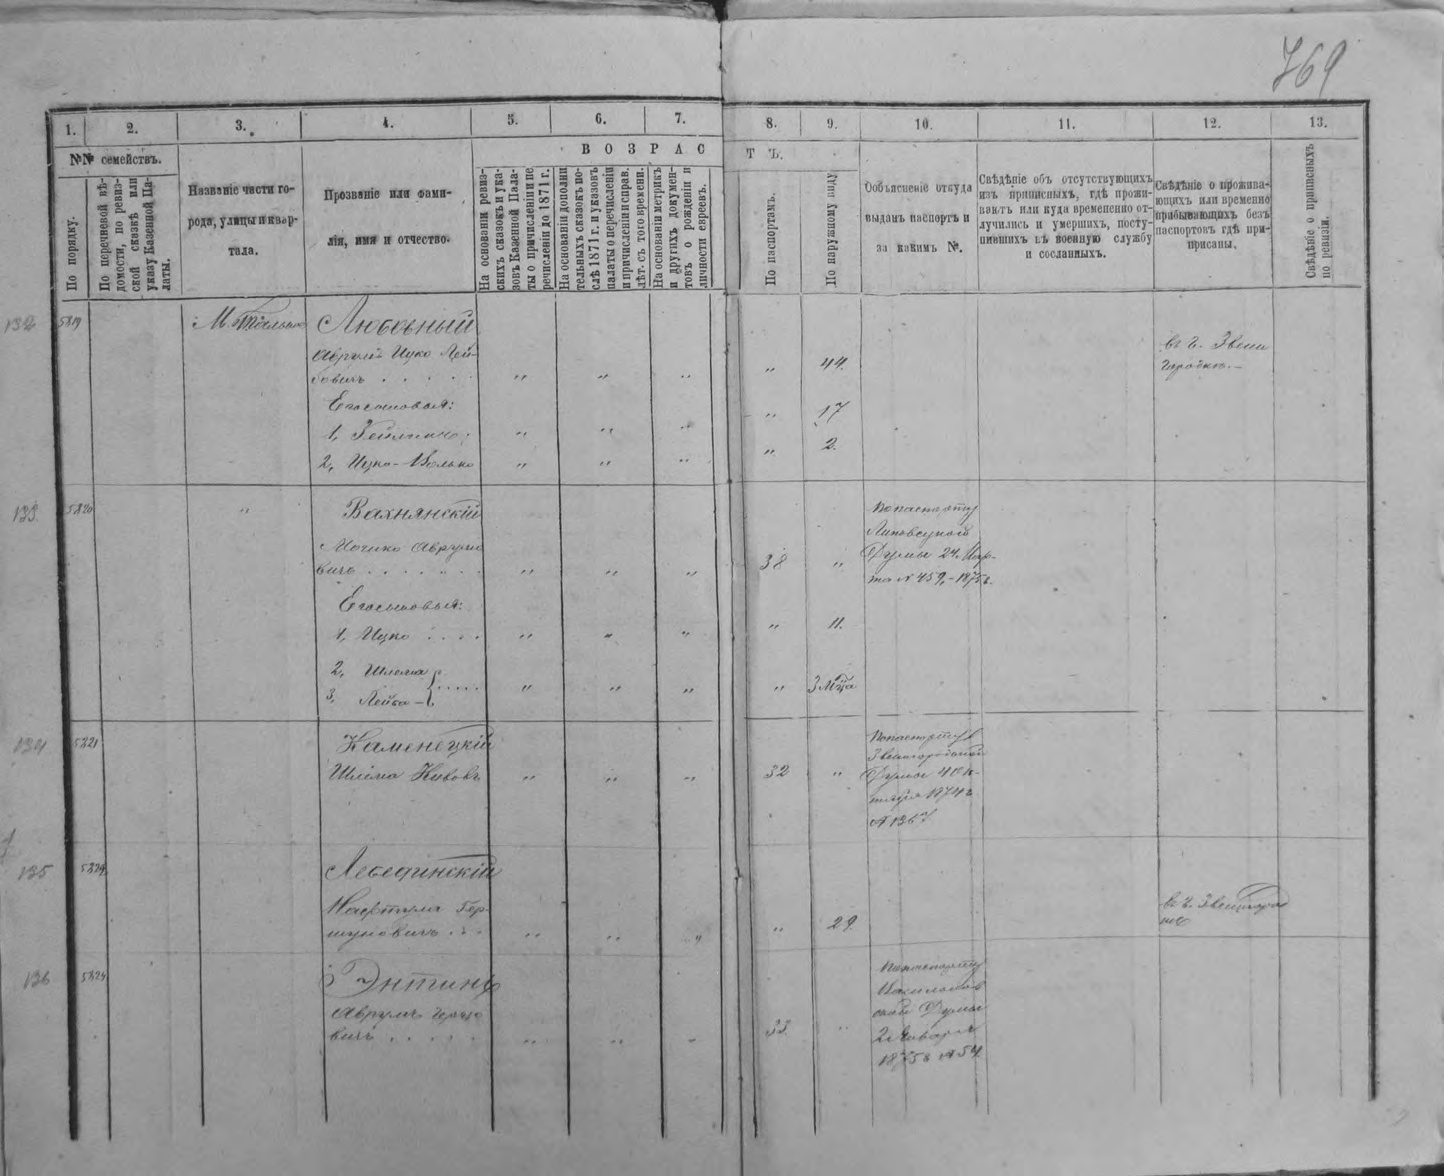 769
1.
2.
3.
4.
5.
6.
7.
8.
9.
10.
11.
12.
13.
№№ семействъ.
По порядку.
По перечневой вѣ-
домости, по ревиз-
ской сказкѣ или
указу Казенной Па-
латы.
Названіе части го-
рода, улицы и квар-
тала.
Прозваніе или фами-
лія, имя и отчество.
ВОЗРАС
ТЪ.
На основаніи ревиз-
скихъ сказокъ и ука-
зовъ Казенной Пала-
ты о причисленіи и пе
речисленіи до 1871 г.
На основаніи дополни
тельныхъ сказокъ по-
слѣ 1871 г. и указовъ
палаты о перечисленіи
и причисленіи и справ.
лѣт. съ того времени.
На основаніи метрикъ
и другихъ докумен-
товъ о рожденіи и
личности евреевъ.
По паспортамъ.
По наружному виду
Объясненіе откуда
выданъ паспортъ и
за какимъ №.
Свѣдѣніе объ отсутствующихъ
изъ приписныхъ, гдѣ прожи-
ваютъ или куда временно от-
лучились и умершихъ, посту-
пившихъ въ военную службу
и сосланныхъ.
Свѣдѣніе о прожива-
ющихъ или временно
прибывающихъ безъ
паспортовъ гдѣ при-
писаны.
Свѣдѣніе о приписныхъ
по ревизіи.
132 5819 М. Тально Любовный
Аврумъ Ицко Лей-
бовичъ . . . . . " " " " 44. въ г. Звени
городкѣ. —
Его сыновья:
1, Зейликъ " " " " 17
2, Ицко-Волько " " " " 2.
133 5820 " Вахнянскій
Мошко Аврумо
вичъ . . . . . . " " " 38 "
По паспорту
Липовецкой
Думы 24. Мар-
та № 459, - 1875 г.
Его сыновья:
1, Ицко . . . . " " " " 11.
2, Шлема
3, Лейба — . . . . . " " " " 3 М-ца
134 5821 Каменецкій
Шлёма " " " 32 "
По паспорту
Звенигородской
Думы 4 Ок-
тября 1874 г.
№ 1367
135 Лебединскій
Нафтула Гер-
шковичъ . . . " " " " 29. въ г. Звенигород
кѣ
136 Энтинъ
Аврумъ Герцо
вичъ . . . . . " " " 33. "
По паспорту
Васильков
ской Думы
2 Января
1875 г. № 54